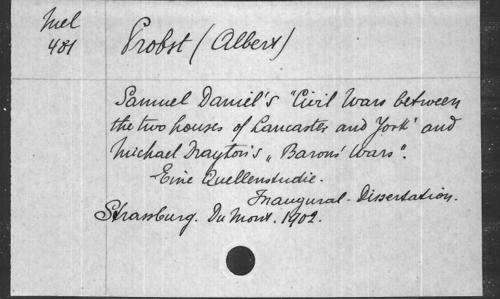 Mel
401
Probst (Albert)
Samuel Daniel's "Civil Wars between
the two houses of Lancaster and York" and
Michael Drayton's „Barons' Wars".
Eine Quellenstudie.
Inaugural-Dissertation.
Strassburg. Du Mont. 1902.